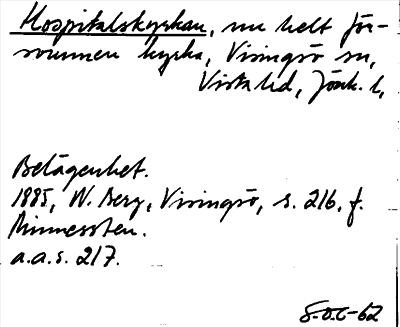 Hospitalskyrkan, nu helt för-
svunnen kyrka, Visingsö sn,
Vista hd, Jönk. l,
Belägenhet.
1885, W. Berg, Visingsö, s. 216. f.
Minnessten.
a.a.s. 217.
S.O.E-62